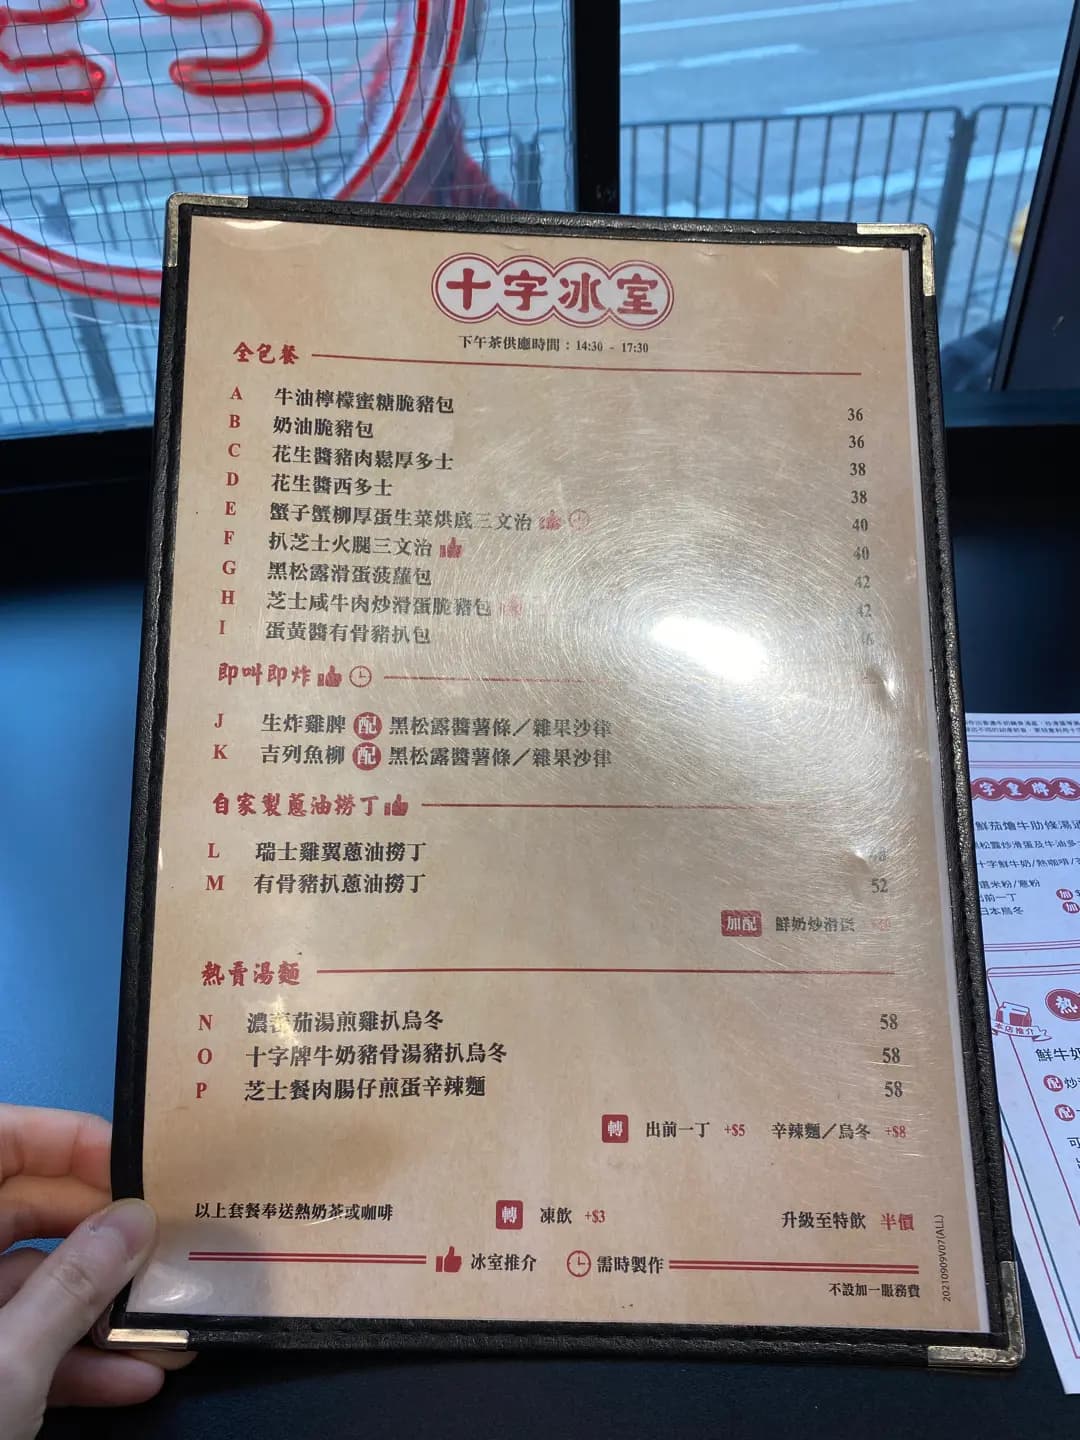 十字冰室
下午茶供應時間：14:30 - 17:30
全包餐
A 牛油檸檬蜜糖脆豬包 36
B 奶油脆豬包 36
C 花生醬豬肉鬆厚多士 38
D 花生醬西多士 38
E 蟹子蟹柳厚蛋生菜烘底三文治 40
F 扒芝士火腿三文治 40
G 黑松露滑蛋菠蘿包 42
H 芝士咸牛肉炒滑蛋脆豬包 42
I 蛋黃醬有骨豬扒包 46
即叫即炸
J 生炸雞脾 配 黑松露醬薯條／雜果沙律
K 吉列魚柳 配 黑松露醬薯條／雜果沙律
自家製蔥油撈丁
L 瑞士雞翼蔥油撈丁 48
M 有骨豬扒蔥油撈丁 52
加配 鮮奶炒滑蛋
熱賣湯麵
N 濃蕃茄湯煎雞扒烏冬 58
O 十字牌牛奶豬骨湯豬扒烏冬 58
P 芝士餐肉腸仔煎蛋辛辣麵 58
轉 出前一丁 +$5 辛辣麵／烏冬 +$8
以上套餐奉送熱奶茶或咖啡 轉 凍飲 +$3 升級至特飲 半價
冰室推介 需時製作
不設加一服務費
20210909V07(ALL)
字皇牌餐
鮮茄燴牛肋條湯
松露炒滑蛋及牛油多
十字鮮牛奶/熱咖啡/
米粉/意粉
出前一丁 加
日本烏冬 加
熱
本店推介
鮮牛奶
配 炒
配
可